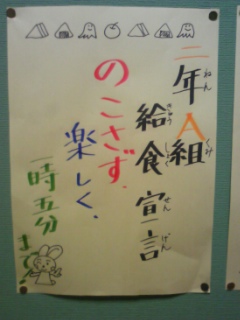 二年A組
給食宣言
のこさず、
楽しく、
一時五分
まで!